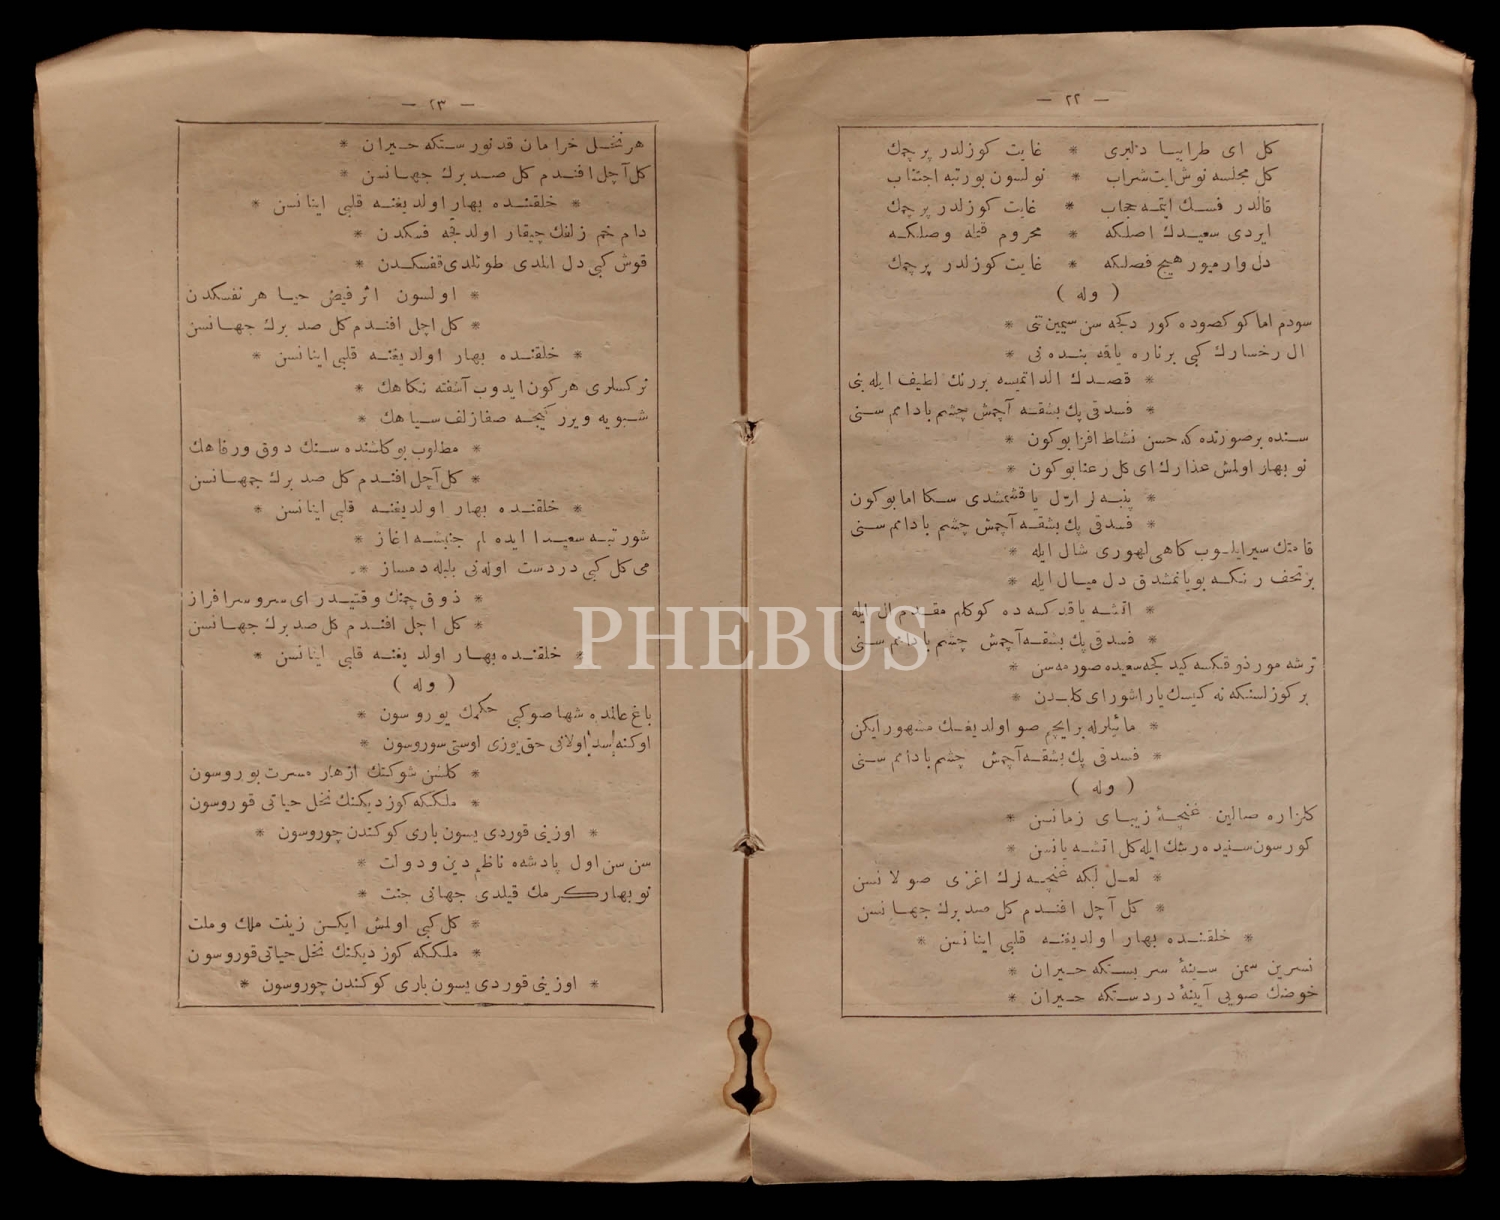 — ٢٢ —
كل ای طرابیا دلبری * غایت كوزلدر پرچمك
كل مجلسه نوش ایت شراب * نولسون بورتبه اجتناب
قالدر فسك ایتمه حجاب * غایت كوزلدر پرچمك
ایردی سعیدك اصلكه * محروم قیله وصلكه
دل وارمیور هیچ فصلكه * غایت كوزلدر پرچمك
( وله )
سودم اما كوكصوده كوردكجه سن سیمین تنی *
ال رخسارك كبی برناره یاقه بنده نی *
* قصدك الداتمیسه بررنك لطیف ایله بنی
* فسدقی پك بشقه آچمش چشم بادامم سنی
سنده برصورتده كه حسن نشاط افزا بوكون *
نو بهار اولمش عذارك ای كل رعنا بوكون *
* پنبه لر ارل یاقشمشدی سكا اما بوكون
* فسدقی پك بشقه آچمش چشم بادامم سنی
قامتك سیرایلوب كاهی لهوری شال ایله *
بر تحف رنكه بویانمشدق دل میال ایله *
* اتشه یاقدكسه ده كوكلم مقدم ال ایله
* فسدقی پك بشقه آچمش چشم بادامم سنی
ترشه مور ذوقكسه كیدكجه سعیده صورمه سن *
بر كوزلسنكه نه كیسك یاراشور ای كلبدن *
* مائیلرله برایچم صو اولدیغك مشهور ایكن
* فسدقی پك بشقه آچمش چشم بادامم سنی
( وله )
كلزاره صالین غنچهٔ زیبای زمانسن *
كورسون سنیده رشك ایله كل اتشه یانسن *
* لعل لبكه غنچه لرك اغزی صولانسن
* كل آچل افندم كل صد برك جهانسن
* خلقنده بهار اولدیغنه قلبی اینانسن *
نسرین سمن سینهٔ سر بستكه حیران *
حوضك صویی آیینهٔ دردستكه حیران *
— ٢٣ —
هر نخل خرامان قد نورستكه حیران *
كل آچل افندم كل صد برك جهانسن *
* خلقنده بهار اولدیغنه قلبی اینانسن *
دام خم زلفك چیقار اولدقجه فسكدن *
قوش كبی دل الملدی طوتلدی قفسكدن *
* اولسون اثر فیض حیا هر نفسكدن
* كل اچل افندم كل صد برك جهانسن
* خلقنده بهار اولدیغنه قلبی اینانسن *
نركسلری هركون ایدوب آشفته نكاهك *
شبویه ویرر كیجه صفا زلف سیاهك *
* مطلوب بو كلشنده سنك ذوق ورفاهك
* كل آچل افندم كل صد برك جهانسن
* خلقنده بهار اولدیغنه قلبی اینانسن *
شورتبه سعیدا ایده لم جنبشه اغاز *
می كل كبی دردست اوله نی بلبله دمساز *
* ذوق چمنك وقتیدر ای سرو سرافراز
* كل اچل افندم كل صد برك جهانسن
* خلقنده بهار اولدیغنه قلبی اینانسن *
( وله )
باغ عالمده شها صوكبی حكمك یوروسون *
اوكنه سد اولانی حق یوزی اوستی سوروسون *
* كلشن شوكتك ازهار مسرت بوروسون
* ملككه كوز دیكنك نخل حیاتی قوروسون
* اوزینی قوردی یسون باری كوكندن چوروسون *
سن سن اول پادشه ناظم دین ودولت *
نو بهار كرمك قیلدی جهانی جنت *
* كل كبی اولمش ایكن زینت ملك وملت
* ملككه كوز دیكنك نخل حیاتی قوروسون
* اوزینی قوردی یسون باری كوكندن چوروسون *
PHEBUS